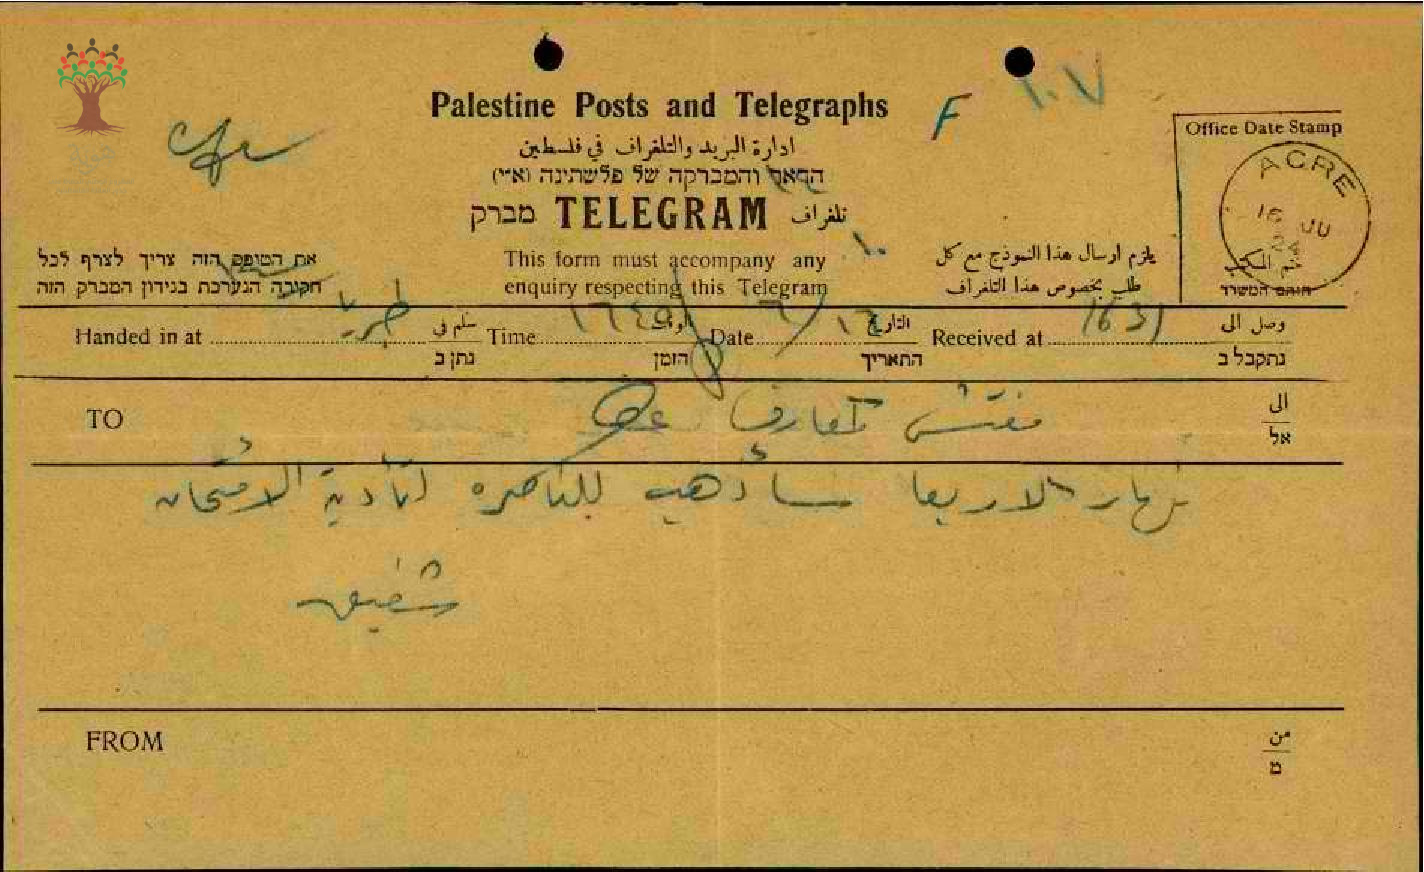 F ١٠٧
Palestine Posts and Telegraphs
ادارة البريد والتلغراف في فلسطين
הדאר והמברקה של פלשתינה (א״י)
מברק TELEGRAM تلغراف
Office Date Stamp
ACRE
16 JU
24
ختم المكتب
חותם המשרד
١٠
את הטופס הזה צריך לצרף לכל
חקירה הנערכת בנידון המברק הזה
This form must accompany any
enquiry respecting this Telegram
يلزم ارسال هذا النموذج مع كل
طلب بخصوص هذا التلغراف
Handed in at طبريا سلم في נתן ב
Time الوقت הזמן
Date ١٦/٦ التاريخ התאריך
Received at 1631 وصل الى נתקבל ב
TO مفتش معارف عكا الى אל
نهار الاربعا سأذهب للناصره لتأدية الامتحان
شفيق
FROM من מ